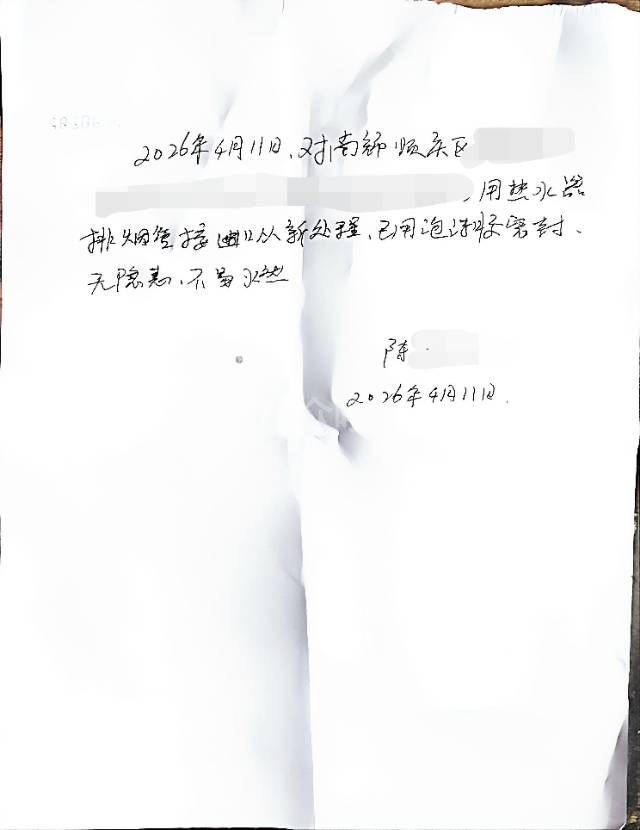 2026年4月11日、对南部顺庆区
、用热水器
排烟管接口从新处理、已用泡沫胶密封、
无隐患、不易
陈
2026年4月11日.